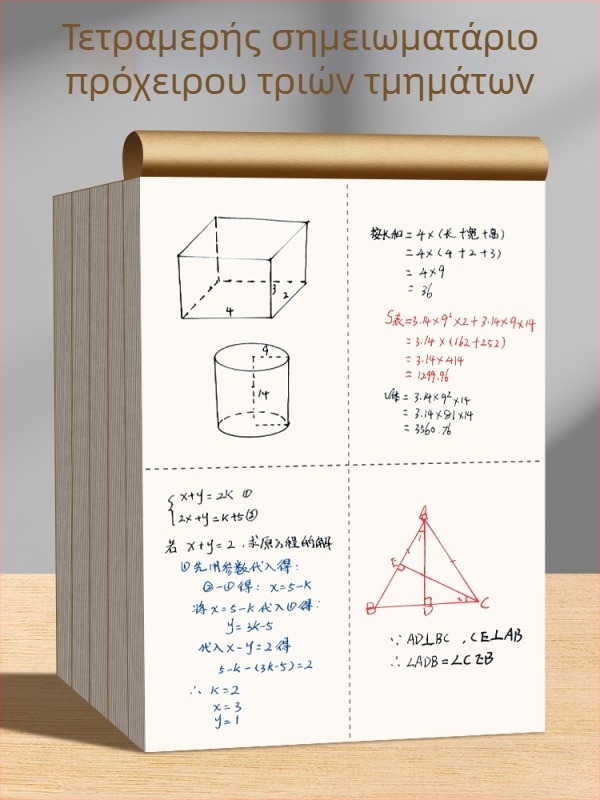 Τετραμερής σημειωματάριο
πρόχειρου τριών τμημάτων
4
3
2
9
14
按长和 = 4×(长+宽+高)
= 4×(4+2+3)
= 4×9
= 36
S表=3.14×9²×2+3.14×9×14
= 3.14×(162+252)
= 3.14×414
= 1299.96
V体 = 3.14×9²×14
= 3.14×81×14
= 3560.76
x+y=2k ①
2x+y=k+5②
若 x+y=2 ,求原方程的解
①先用参数代入得:
②-①得: x=5-k
将 x=5-k 代入①得:
y=3k-5
代入 x-y=2 得
5-k-(3k-5)=2
∴ k=2
x=3
y=1
A
E
B
D
C
∵ AD⊥BC ,CE⊥AB
∴ ∠ADB=∠CEB